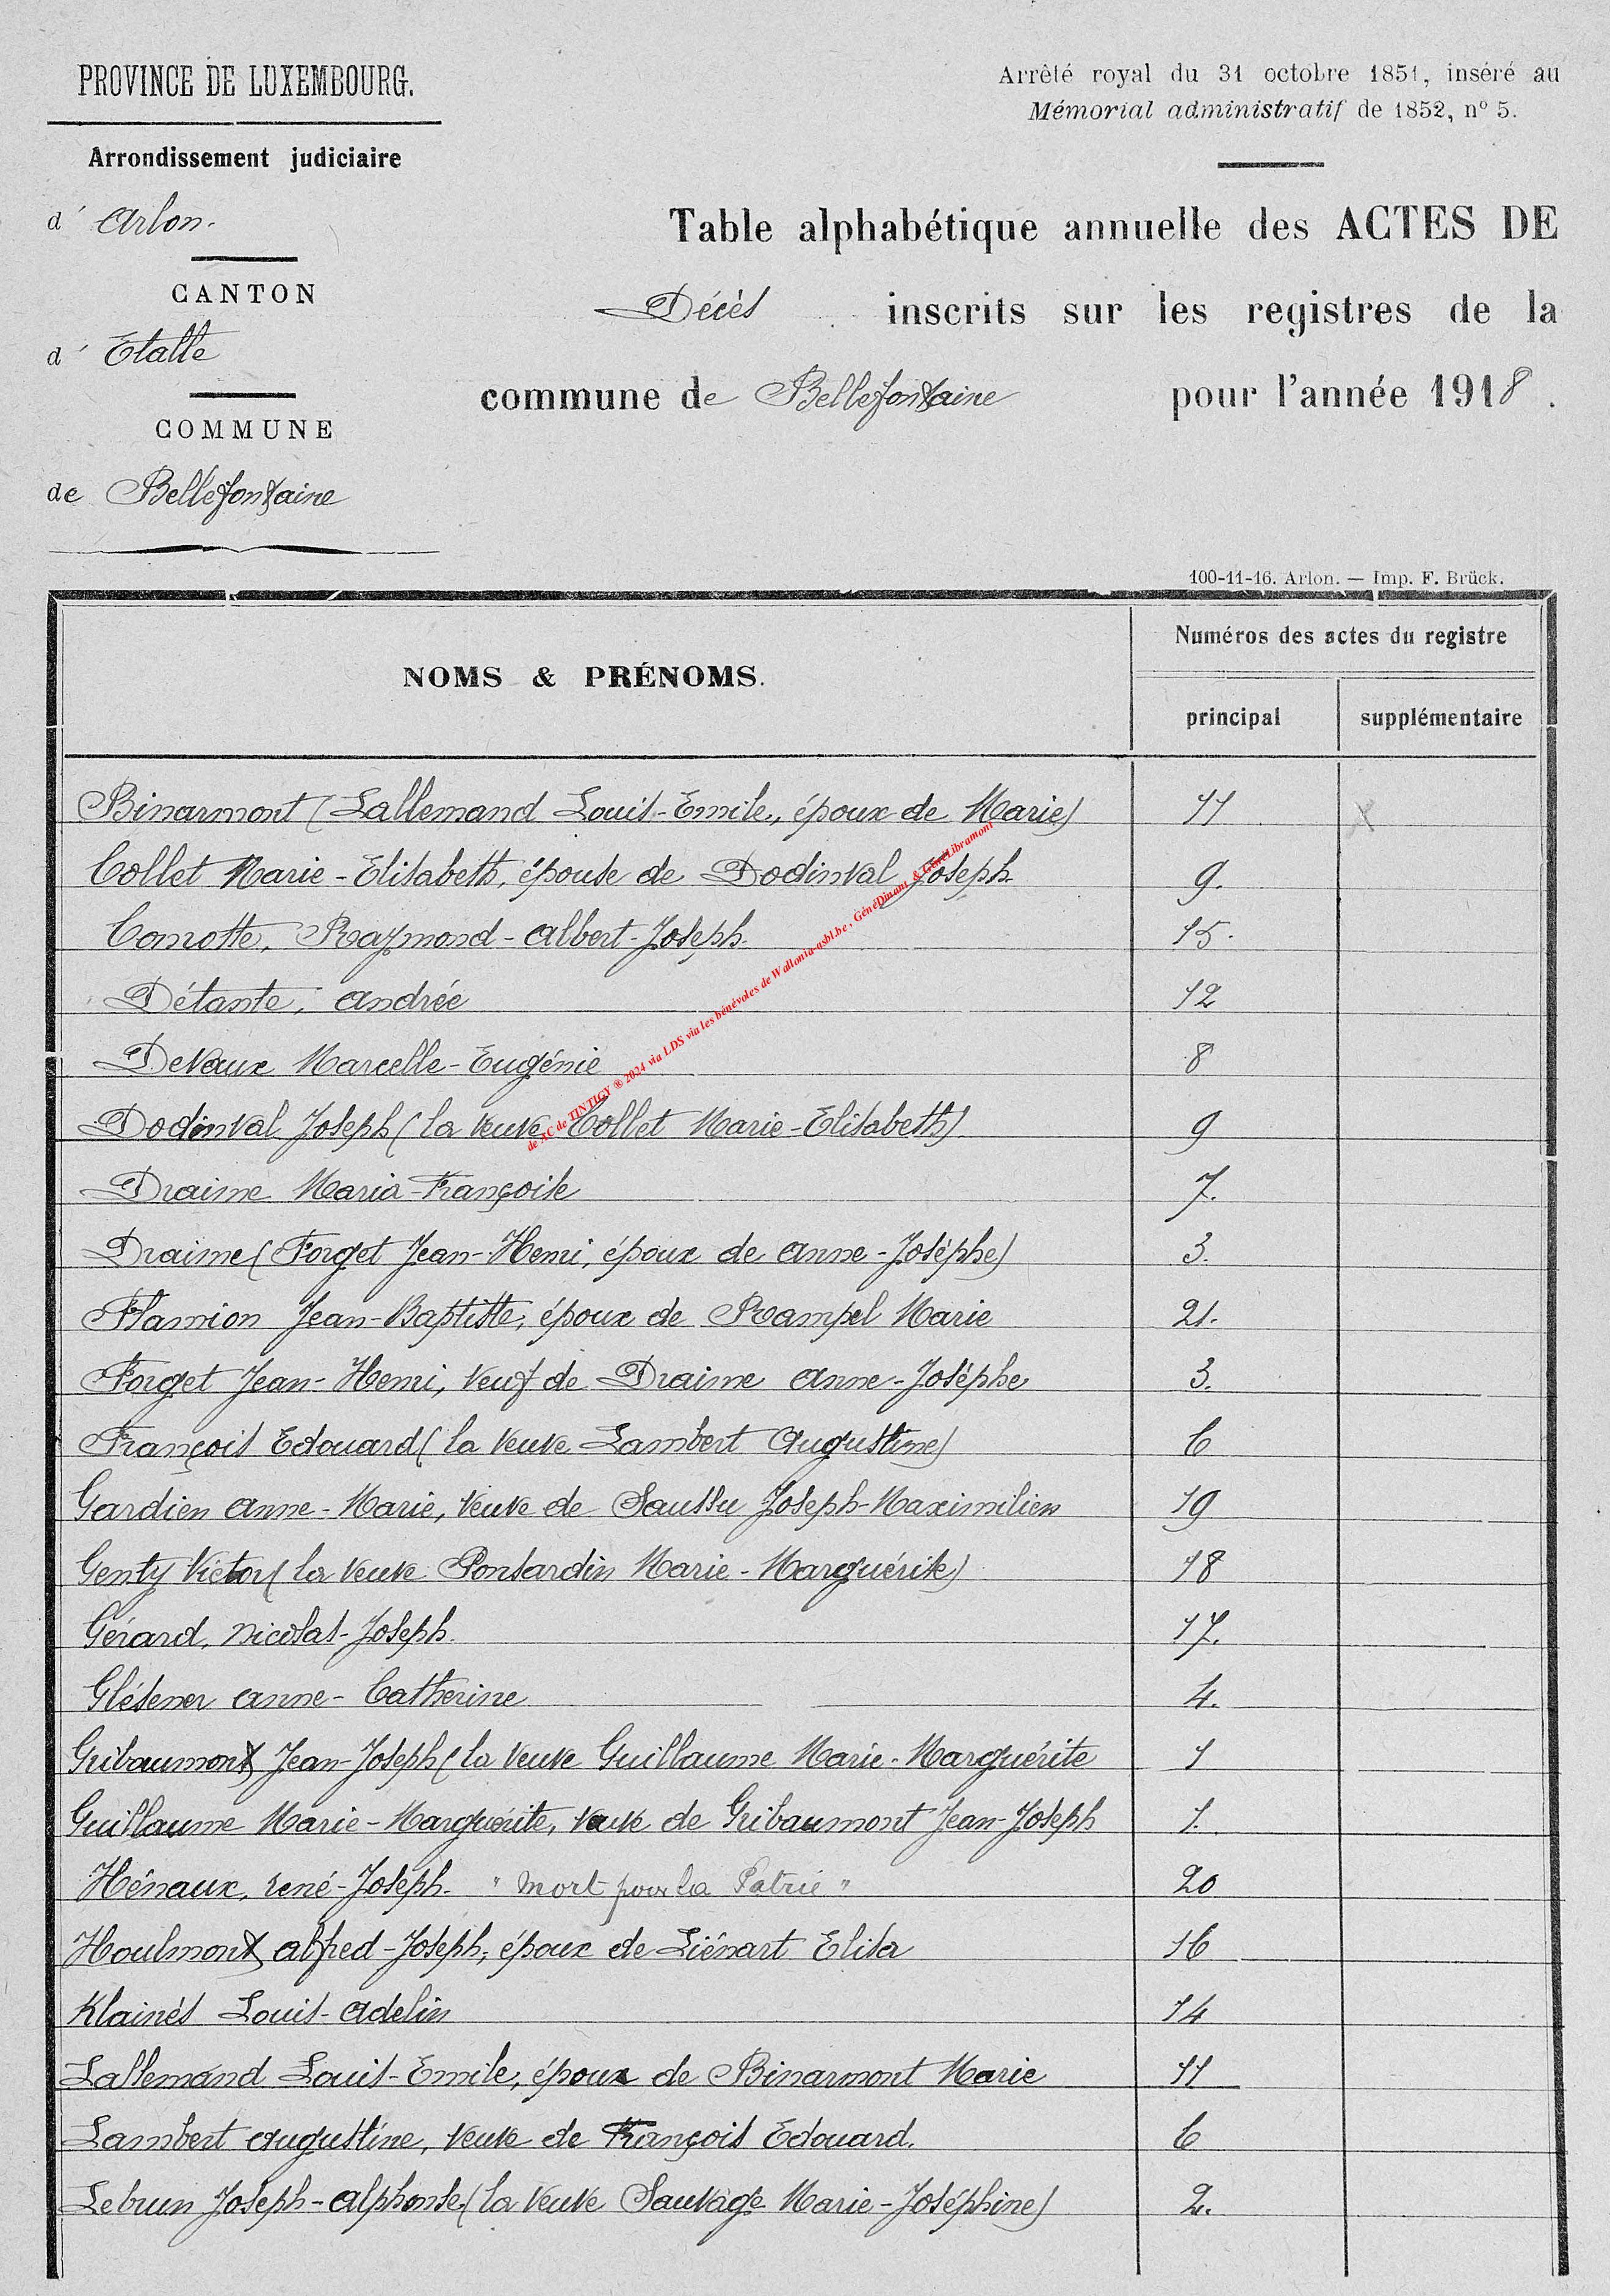 PROVINCE DE LUXEMBOURG.
Arrêté royal du 31 octobre 1851, inséré au
Mémorial administratif de 1852, nº 5.
Arrondissement judiciaire
d' Arlon.
CANTON
d' Etalle
COMMUNE
de Bellefontaine
Table alphabétique annuelle des ACTES DE
Décès inscrits sur les registres de la
commune de Bellefontaine pour l'année 1918.
100-11-16. Arlon. — Imp. F. Brück.
NOMS & PRÉNOMS.
Numéros des actes du registre
principal supplémentaire
Binarmont (Lallemand Louis-Emile, époux de Marie) 11 X
Collet Marie-Elisabeth, épouse de Dodinval Joseph. 9.
Comotte, Raymond-Albert-Joseph. 15.
Détante, Andrée 12
Devaux Marcelle-Eugénie 8
Dodinval Joseph (la veuve Collet Marie-Elisabeth) 9
Draime Maria-Françoise 7.
Draime (Forget Jean-Henri, époux de Anne-Josèphe) 3.
Flamion Jean-Baptiste, époux de Rampel Marie 21.
Forget Jean-Henri, veuf de Draime Anne-Josèphe 3.
François Edouard (la veuve Lambert Augustine) 6
Gardien Anne-Marie, veuve de Saussu Joseph-Maximilien 19
Genty Victor (la veuve Ponsardin Marie-Marguérite) 18
Gérard, Nicolas-Joseph. 17.
Glésener Anne-Catherine 4.
Gribaumont Jean-Joseph (la veuve Guillaume Marie-Marguérite 1
Guillaume Marie-Marguérite, veuve de Gribaumont Jean-Joseph 1.
Hénaux, René-Joseph. "Mort pour la Patrie" 20
Houlmont Alfred-Joseph, époux de Liénart Elisa 16
Klainés Louis-Adelin 14
Lallemand Louis-Emile, époux de Binarmont Marie 11
Lambert Augustine, veuve de François Edouard. 6
Lebrun Joseph-Alphonse (la veuve Sauvage Marie-Joséphine) 2.
de AC de TINTIGY ® 2024 via LDS via les bénévoles de Wallonia-asbl.be, GénéDinant & GénéLibramont